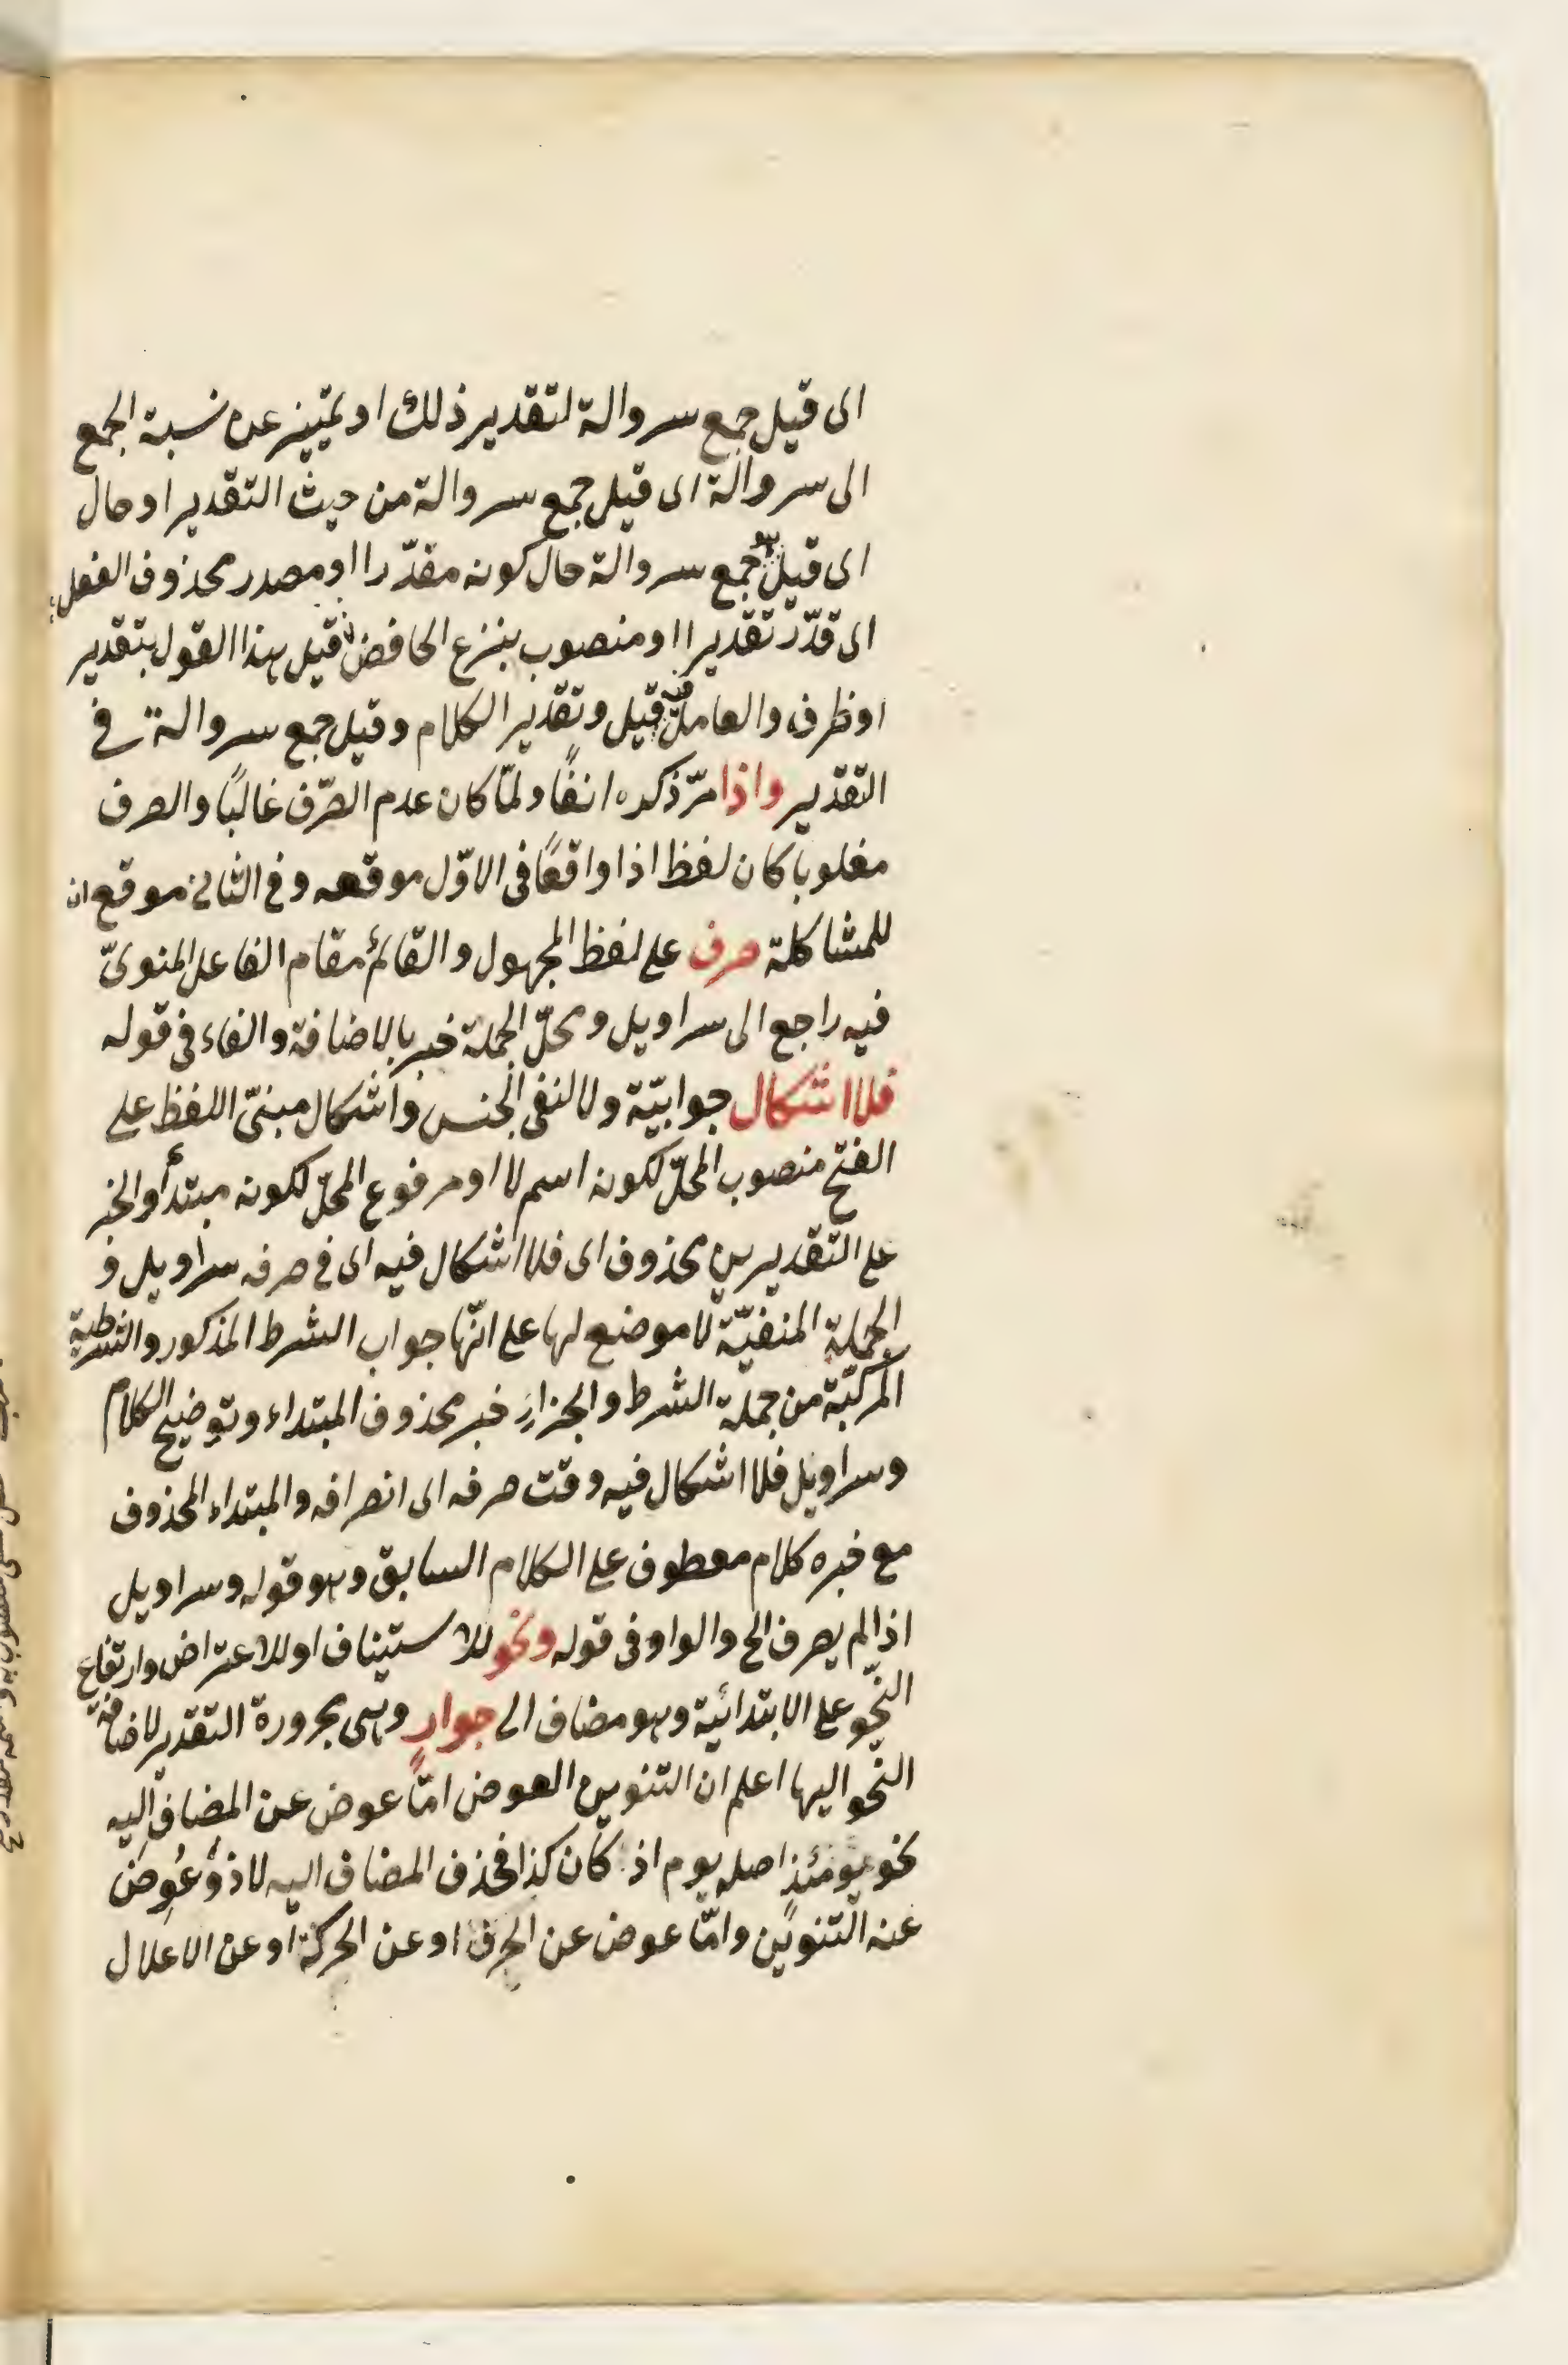 اى قيل جمع سروالة لتقدير ذلك او تمييز عن نسبة الجمع
الى سروالة اى قيل جمع سروالة من حيث التقدير او حال
اى قيل هو جمع سروالة حال كونه مقدّرا او مصدر محذوف الفعل
اى قدّر تقديرا او منصوب بنزع الخافض اى قيل هذا القول بتقدير
او ظرف والعامل فيه قيل وتقدير الكلام وقيل جمع سروالة فى
التقدير واذا مرّ ذكره انفًا ولمّا كان عدم الصّرف غالبًا والصرف
مغلوبا كان لفظ اذا واقعًا فى الاوّل موقعه وفى الثانى موقع ان
للمشاكلة صرف على لفظ المجهول والقائم مقام الفاعل المنوىّ
فيه راجع الى سراويل ومحلّ الجملة خبر بالاضافة والفاء فى قوله
فلا اشكال جوابيّة ولا لنفى الجنس واشكال مبنىّ اللفظ على
الفتح منصوب المحلّ لكونه اسم لا او مرفوع المحلّ لكونه مبتدأ والخبر
على التقديرين محذوف اى فلا اشكال فيه اى فى صرفه سراويل و
الجملة المنفيّة لا موضع لها على انّها جواب الشرط المذكور والشرطية
المركّبة من جملة الشرط والجزاء خبر محذوف المبتداء وتوضيح الكلام
وسراويل فلا اشكال فيه وقت صرفه اى انصرافه والمبتداء المحذوف
مع خبره كلام معطوف على الكلام السابق وهو قوله وسراويل
اذا لم يصرف الخ والواو فى قوله ونحو للاستيناف او للاعتراض وارتفاع
النّحو على الابتدائية وهو مضاف الى جوارٍ وهى مجرورة التقدير لاضافة
النحو اليها اعلم ان التنوين العوض امّا عوض عن المضاف اليه
نحو يومئذٍ اصله يوم اذ كان كذا فحذف المضاف اليه لاذ وعُوِضَ
عنه التنوين وامّا عوض عن الحرف او عن الحركة او عن الاعلال